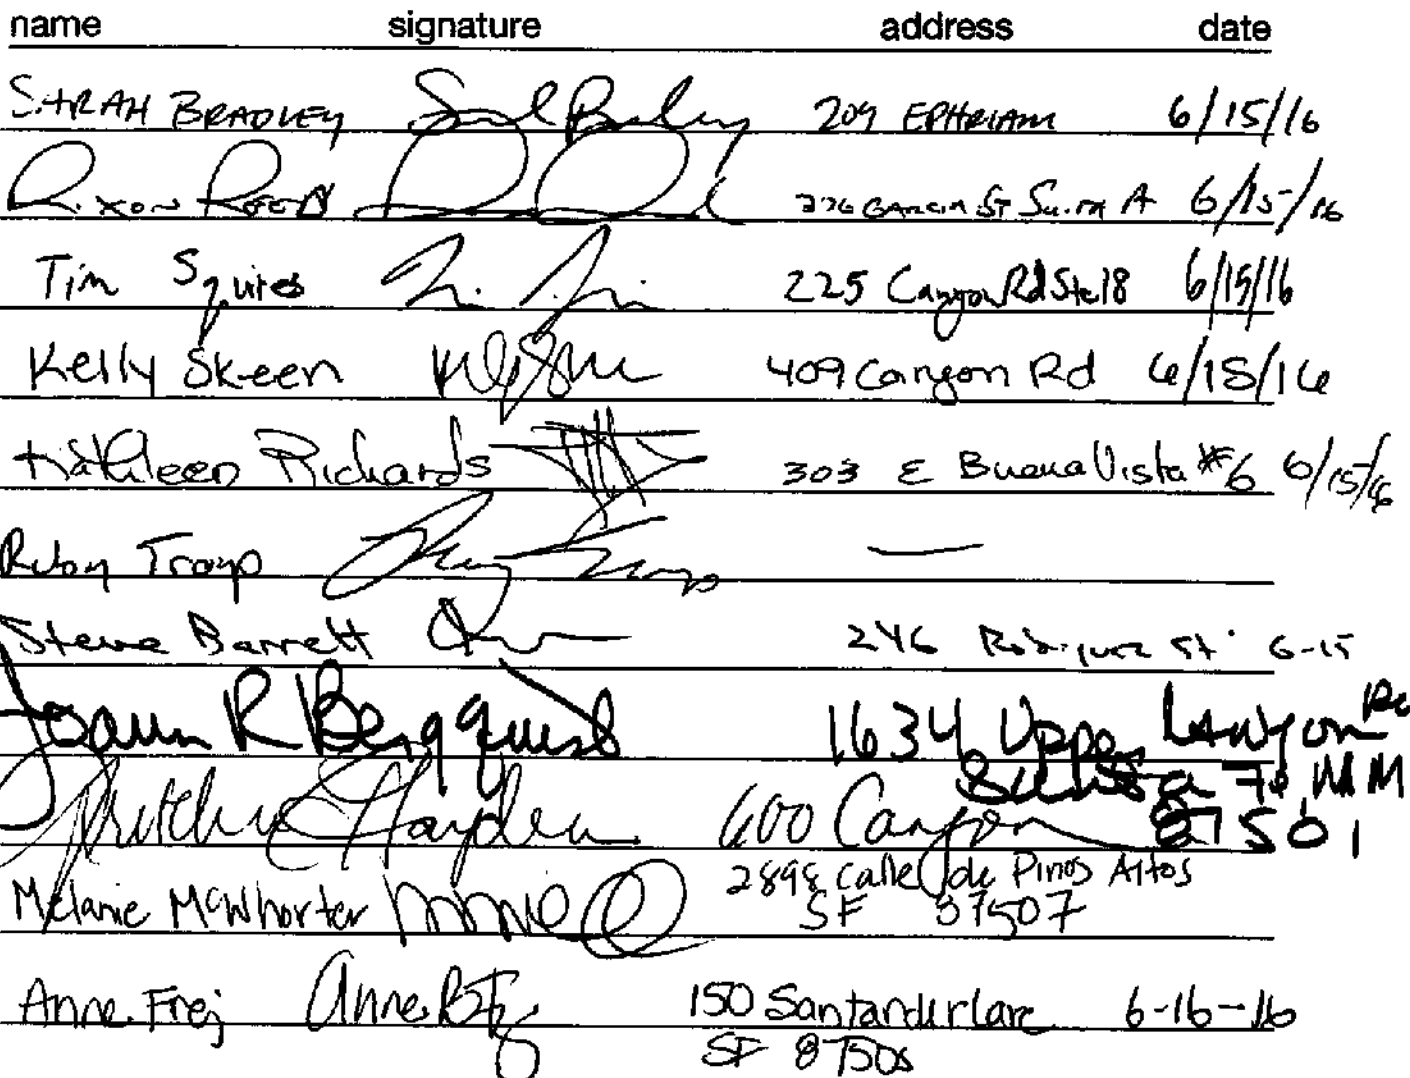 name signature address date
SARAH BRADLEY 209 EPHRIAM 6/15/16
Rixon Reed 226 GARCIA ST Suite A 6/15/16
Tim Squires 225 Canyon Rd Ste 18 6/15/16
Kelly Skeen 409 Canyon Rd 6/15/16
Kathleen Richards 303 E Buena Vista #6 6/15/16
Ruby Troyp —
Steve Barrett 246 Rodriguez St 6-15
Joann R Bergquist 1634 Upper Canyon Rd
Santa Fe, NM
Hayden 600 Canyon 87501
2898 Calle de Pinos Altos
Melanie McWhorter SF 87507
Anne Frej Anne 150 Santander Lane 6-16-16
SF 87505